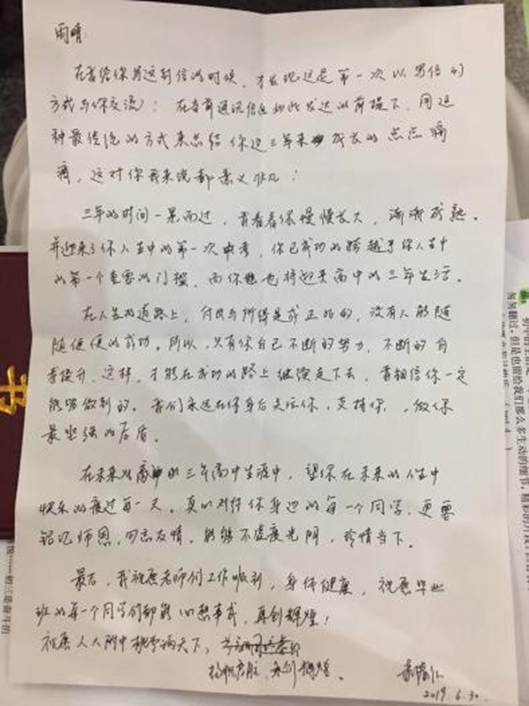 雨晴:
在爸给你写这封信的时候,才发现这是第一次以写信的
方式与你交流!在当前通讯信息如此发达的前提下,用这
种最传统的方式来总结你这三年来成长的点点滴
滴,这对你我来说都意义非凡!
三年的时间一晃而过,爸看着你慢慢长大,渐渐成熟。
并迎来了你人生中的第一次中考,你已成功的跨越了你人生中
的第一个重要的门槛,而你也将迎来高中的三年生活。
在人生的道路上,付出与所得是成正比的,没有人能随
随便便的成功。所以,只有你自己不断的努力,不断的自
我提升,这样,才能在成功的路上继续走下去,爸相信你一定
能够做到的。我们永远在你身后关注你,支持你,做你
最坚强的后盾。
在未来的高中的三年高中生涯中,望你在未来的人生中
快乐的度过每一天。真心对待你身边的每一个同学,更要
铭记师恩,勿忘友情。能够不虚度光阴,珍惜当下。
最后,我祝愿老师们工作顺利,身体健康,祝愿毕业
班的每一个同学们都能心想事成,再创辉煌!
祝愿人大附中桃李满天下,
扬帆启航,再创辉煌。
2019.6.30
匆匆翻过,但是也留给我们那么多生动的细节,